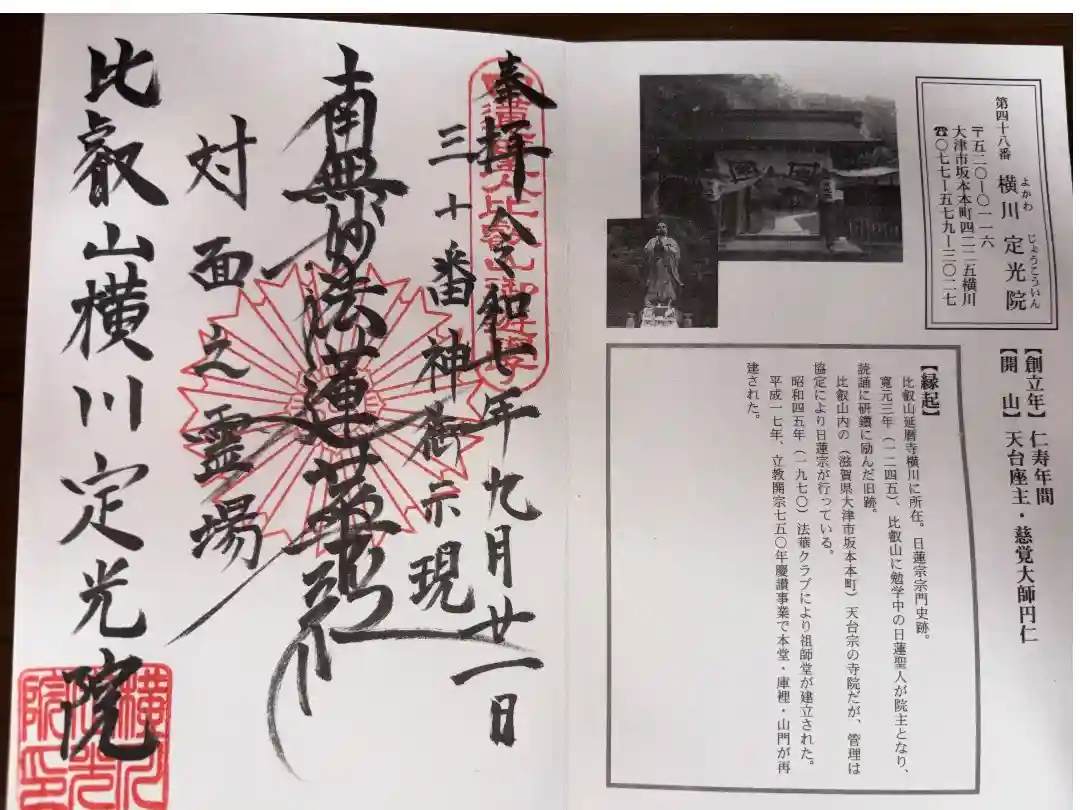 第四十八番 横川 定光院
よかわ じょうこういん
〒五二〇―〇一一六
大津市坂本本町四二二五横川
☎〇七七―五七九―三〇二七
【創立年】仁寿年間
【開 山】天台座主・慈覚大師円仁
【縁起】
比叡山延暦寺横川に所在。日蓮宗宗門史跡。
寛元三年（一二四五）、比叡山に勉学中の日蓮聖人が院主となり、
読誦に研鑽に励んだ旧跡。
比叡山内の（滋賀県大津市坂本本町）天台宗の寺院だが、管理は
協定により日蓮宗が行っている。
昭和四五年（一九七〇）法華クラブにより祖師堂が建立された。
平成一七年、立教開宗七五〇年慶讃事業で本堂・庫裡・山門が再
建された。
奉拝 令和七年九月廿一日
三十番神御示現
南無妙法蓮華経
対面之霊場
比叡山横川定光院
横川
定光
院印